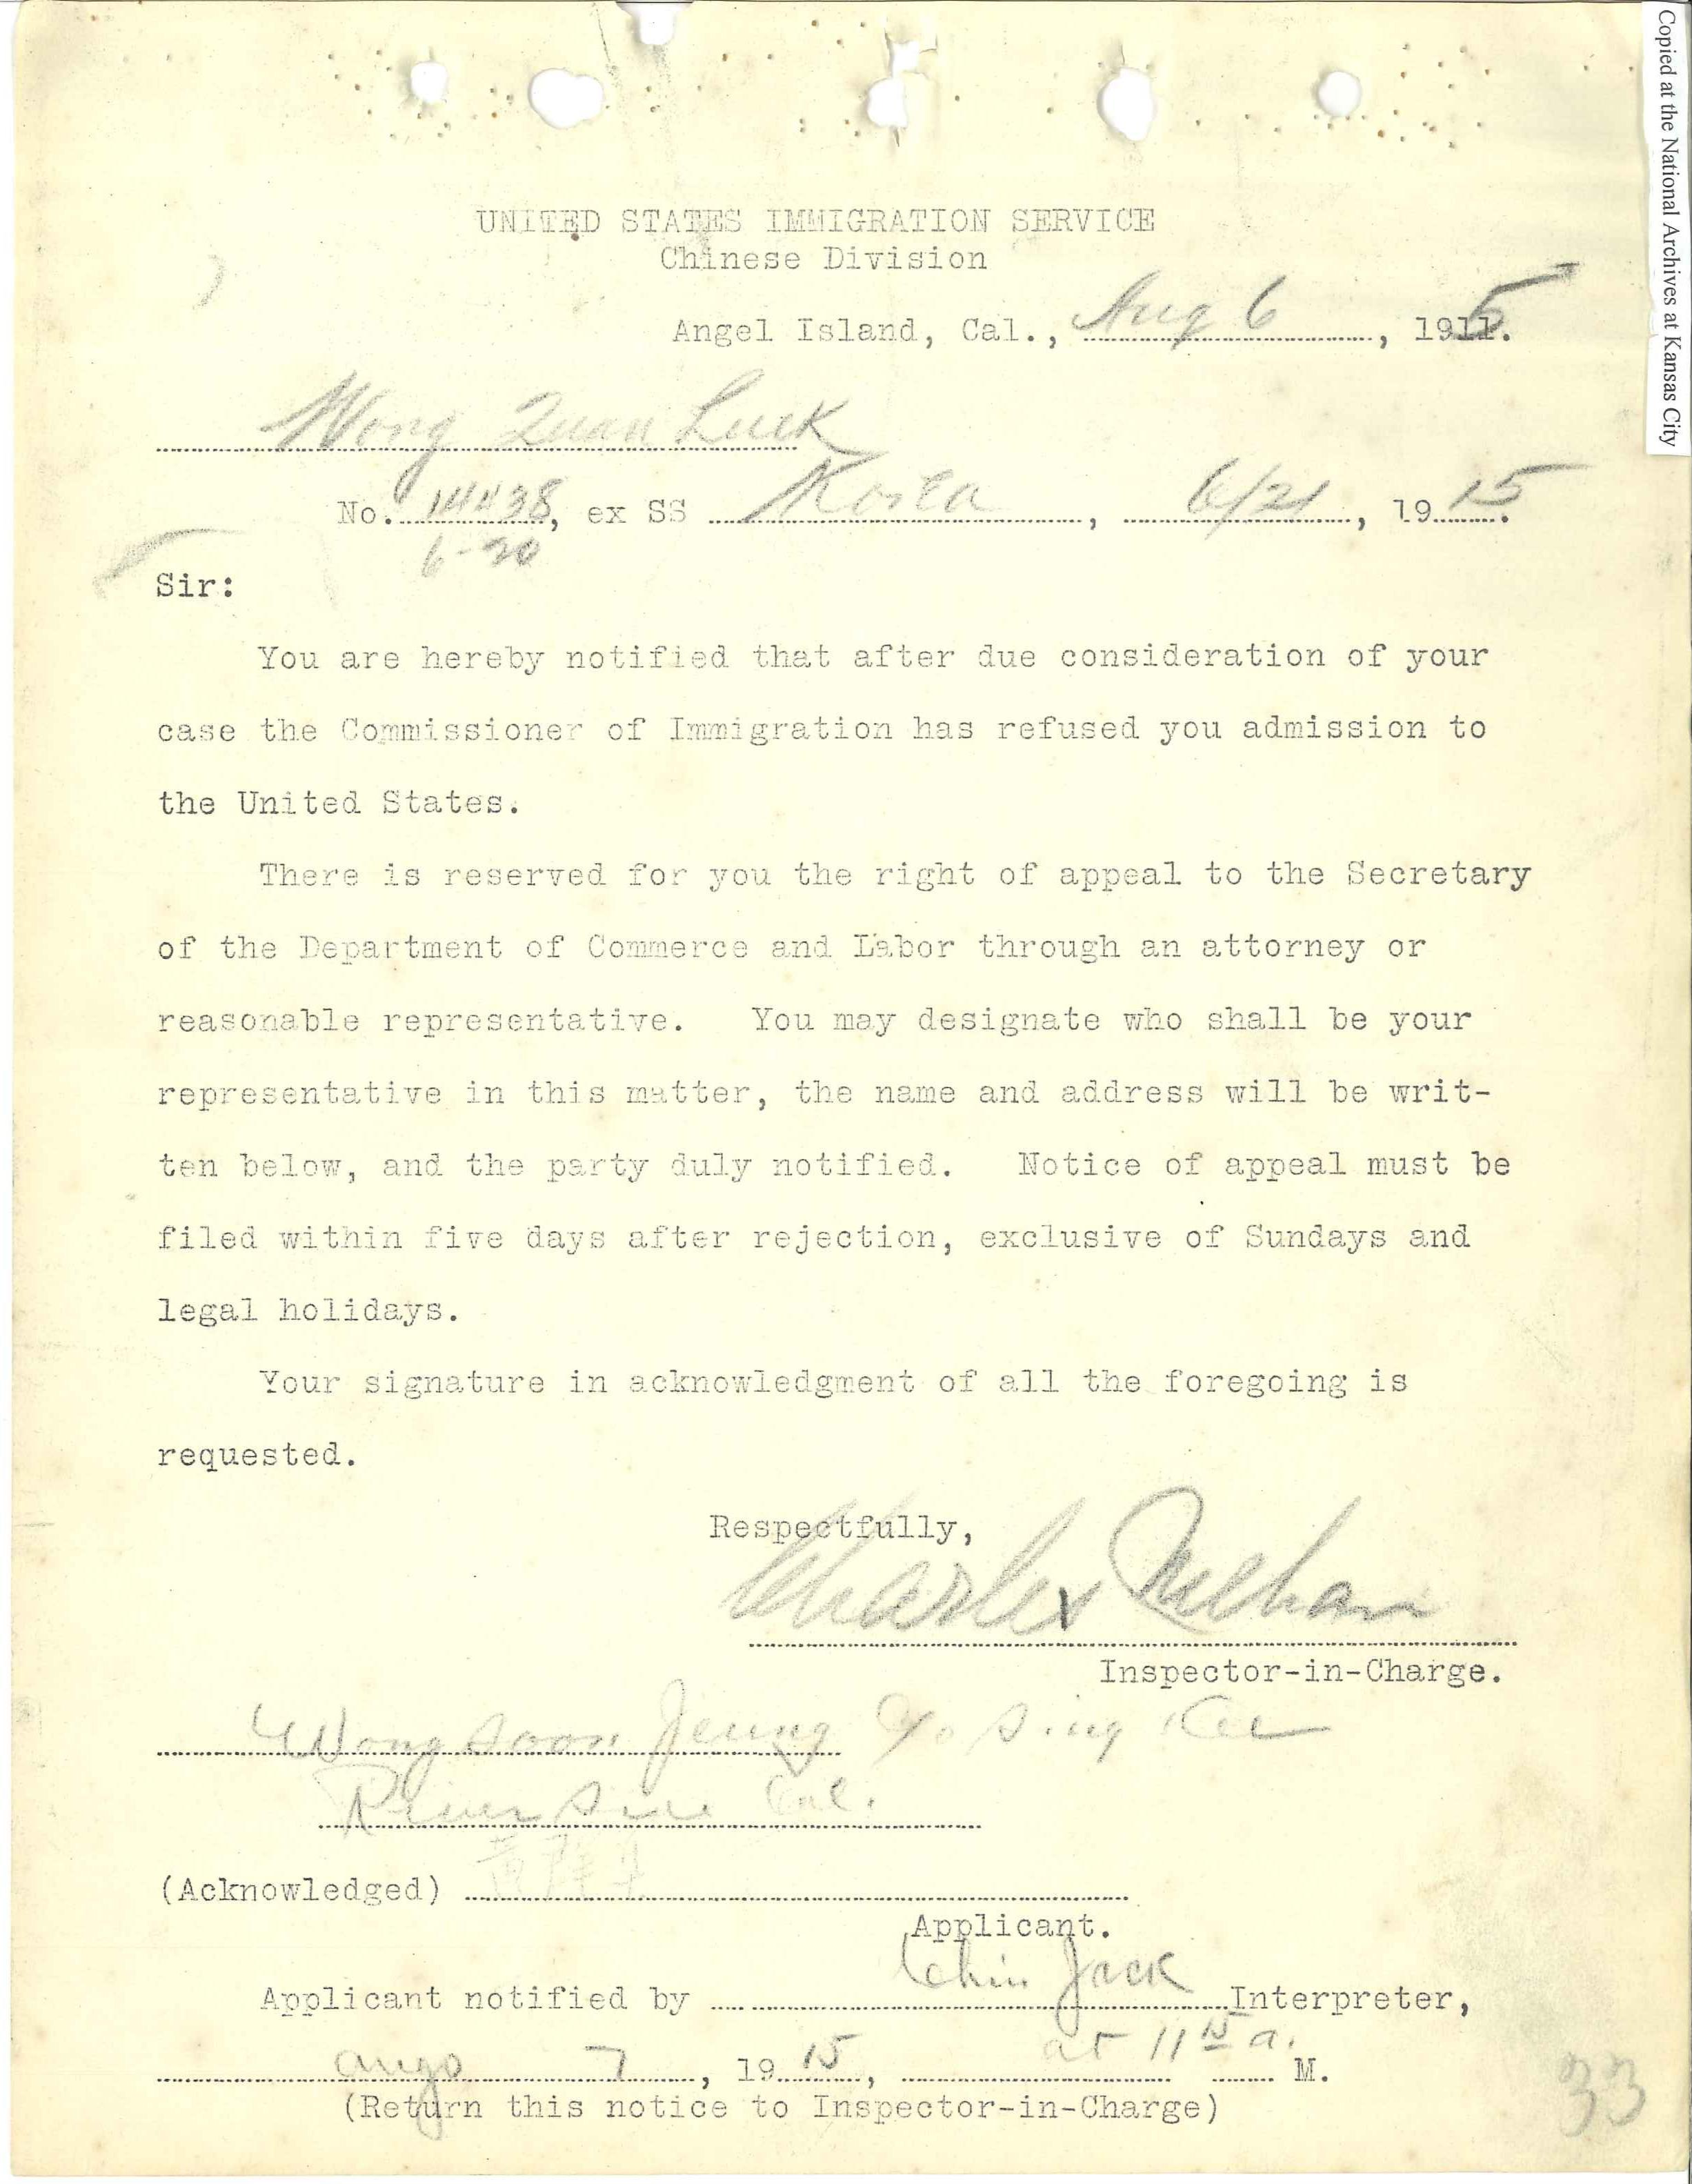 Copied at the National Archives at Kansas City
UNITED STATES IMMIGRATION SERVICE
Chinese Division
Angel Island, Cal., Aug 6, 1915.
Wong Quan Luck
No. 14438, ex SS Korea, 6/21, 1915.
6-20
Sir:
You are hereby notified that after due consideration of your
case the Commissioner of Immigration has refused you admission to
the United States.
There is reserved for you the right of appeal to the Secretary
of the Department of Commerce and Labor through an attorney or
reasonable representative. You may designate who shall be your
representative in this matter, the name and address will be writ-
ten below, and the party duly notified. Notice of appeal must be
filed within five days after rejection, exclusive of Sundays and
legal holidays.
Your signature in acknowledgment of all the foregoing is
requested.
Respectfully,
Charles Mehan
Inspector-in-Charge.
Wong Soon Jeung c/o Sing Kee
Riverside Cal.
(Acknowledged) 黃
Applicant.
Applicant notified by Chin Jack Interpreter,
Aug 7, 1915, at 11 15 a. M.
(Return this notice to Inspector-in-Charge)
33